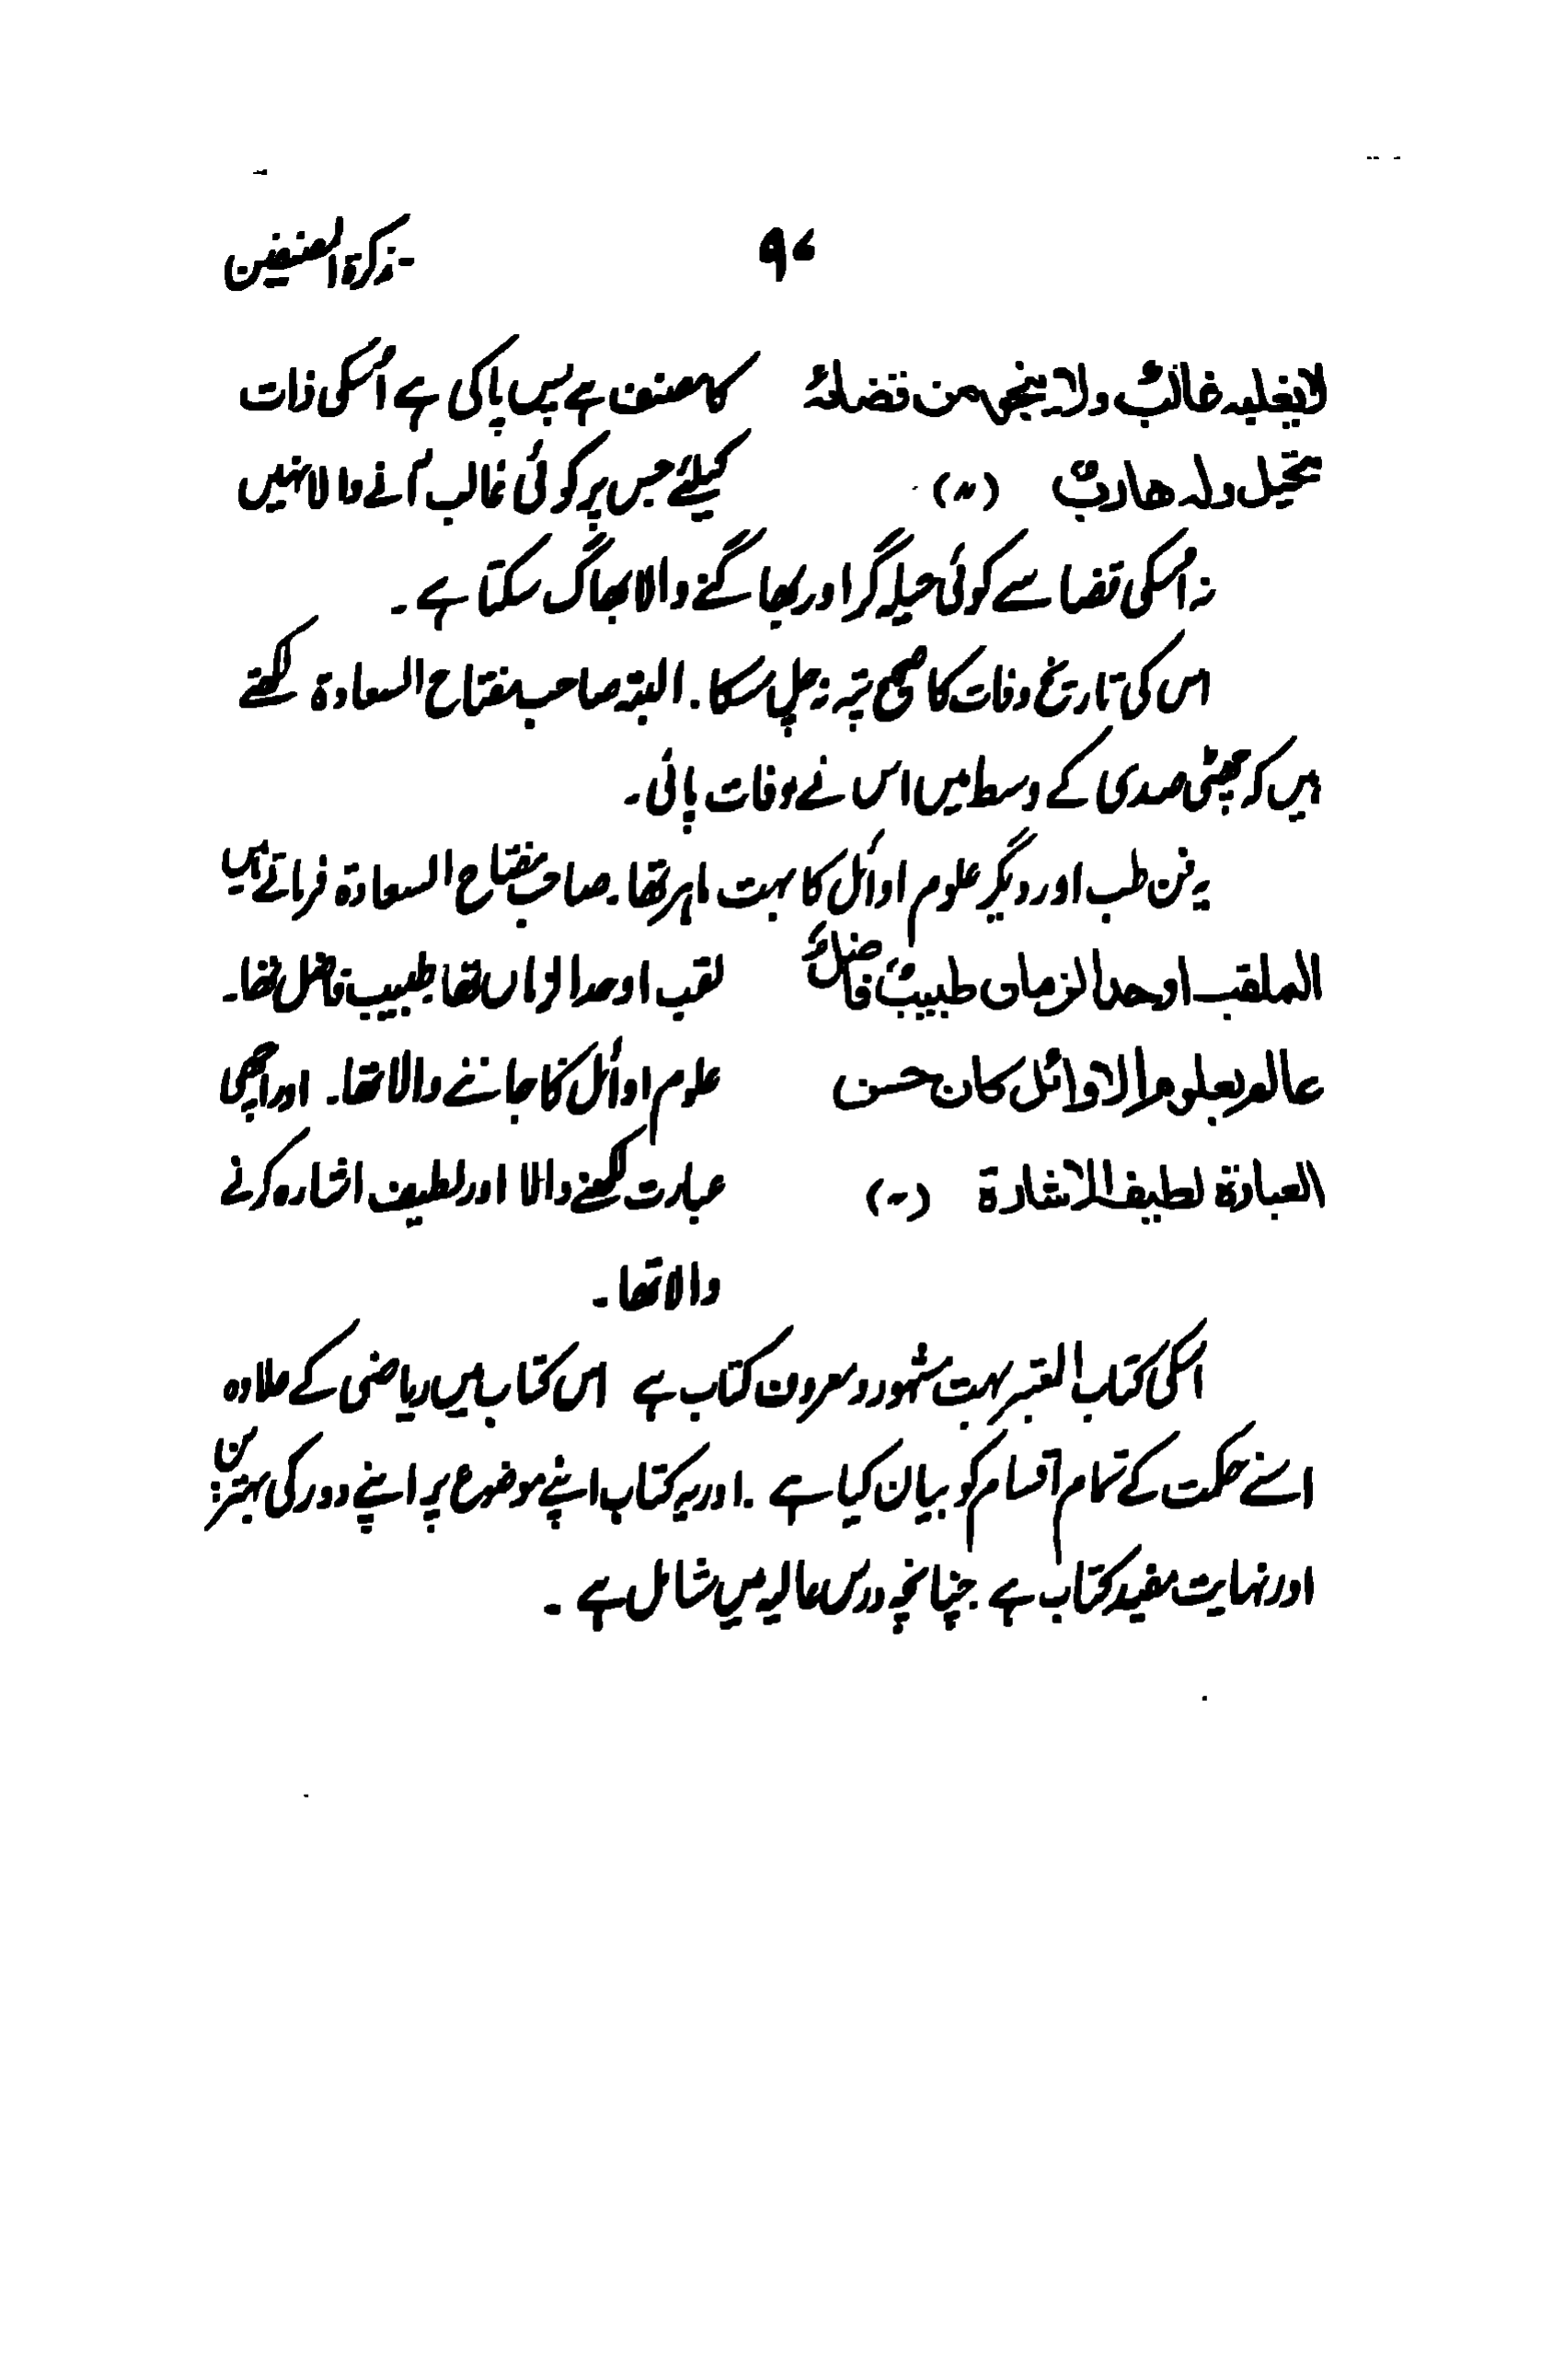 تذکرۃ المصنفین ۹۶
لا یغلبہ غالبٌ ولا ینجی من قضائہٖ کا مصنف ہے پس پاکی ہے اُسکی ذات
متحیل ولا ھاربٌ کیلئے جس پر کوئی غالب آنے والا نہیں
نہ اُسکی قضا سے کوئی حیلہ گر اور بھاگنے والا بھاگ سکتا ہے۔
اس کی تاریخ وفات کا صحیح پتہ نہ چل سکا۔ البتہ صاحب مفتاح السعادۃ لکھتے
ہیں کہ چھٹی صدی کے وسط میں اس نے وفات پائی۔
یہ فن طب اور دیگر علوم اوائل کا بہت ماہر تھا۔ صاحب مفتاح السعادۃ فرماتے ہیں
الملقب اوحد الزمان طبیبٌ فاضلٌ لقب اوحد الزماں تھا طبیب فاضل تھا۔
عالم بعلوم الاوائل کان حسن علوم اوائل کا جاننے والا تھا۔ اور اچھی
العبارۃ لطیف الاشارۃ عبارت لکھنے والا اور لطیف اشارہ کرنے
والا تھا۔
اسکی کتاب المعتبر بہت مشہور و معروف کتاب ہے اس کتاب میں ریاضی کے علاوہ
اسنے حکمت کے تمام اقسام کو بیان کیا ہے۔ اور یہ کتاب اپنے موضوع پر اپنے دور کی بہترین
اور نہایت مفید کتاب ہے چنانچہ درس عالیہ میں شامل ہے۔